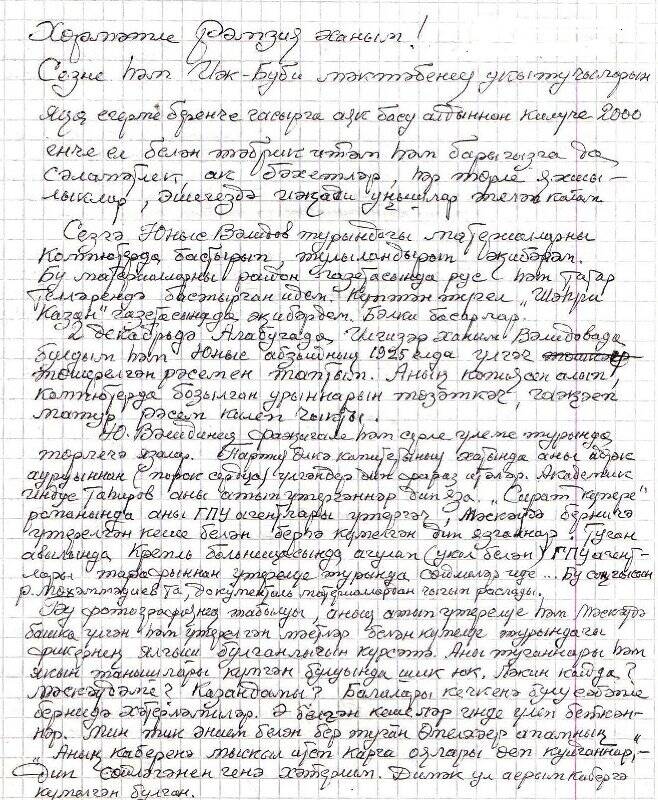 Хөрмәтле Рәмзия ханым!
Сезне һәм Иж-Буби мәктәбенең укытучыларын
яңа егерме беренче гасырга аяк басу алдыннан килүче 2000
енче ел белән тәбрик итәм һәм барыгызга да
сәламәтлек, ак бәхетләр, һәр төрле яхшы-
лыклар, эшегездә иҗади уңышлар теләп калам.
Сезгә Юныс Вәлидов турындагы материалларны
компютерда бастырып, тулыландырып җибәрәм.
Бу материалларны район газетасында рус һәм татар
телләрендә бастырган идем. Күптән түгел „Шәһри
Казан" газетасына да җибәрдем. Бәлки басарлар.
2 декабрьдә Алабугада, Илгизәр ханым Вәлидовада
булдым һәм Юныс абзыйның 1925 елда үлгәч
төшерелгән рәсемен таптым. Аның копиясен алып,
компютерда бозылган урыннарын төзәткәч, гаҗәеп
матур рәсем килеп чыкты.
Ю. Вәлидинең фаҗигале һәм серле үлеме турында
төрлечә язалар. Партия Үзәк комитетының хатында аны йөрәк
авыруыннан (порок сердца) үлгәндер дип фараз итәләр. Академик
Индус Таһиров аны атып үтергәннәр дип яза. „Сират күпере"
романында аны ГПУ агентлары үтергәч, Мәскәүдә берничә
үтерелгән кеше белән бергә күмелгән дип язганнар. Туган
авылында, Кремль больницасында агулап (укол белән) ГПУ агент-
лары тарафыннан үтерелүе турында сөйлиләр иде... Бу соңгысын
Р. Мөхәммәдиев та, документаль материаллардан чыгып раслады.
Бу фотографиянең табылуы, аның атып үтерелүе һәм Мәскәүдә
башка үлгән һәм үтерелгән мәетләр белән күмелүе турындагы
фикернең ялгыш булганлыгын күрсәтә. Аны туганнары һәм
якын танышлары күмгән булуында шик юк. Ләкин кайда?
Мәскәүдәме? Казандамы? Балалары кечкенә булу сәбәпле
берниде хәтерләмиләр. Ә белгән кешеләр инде үлеп беткән-
нәр. Мин тик әнием белән бер туган апамның
„Аның каберенә мыскал итеп карга оялары дип куйганнар,–"
– дип сөйләгәнен генә хәтерлим. Димәк ул аерым кабергә
күмелгән булган.